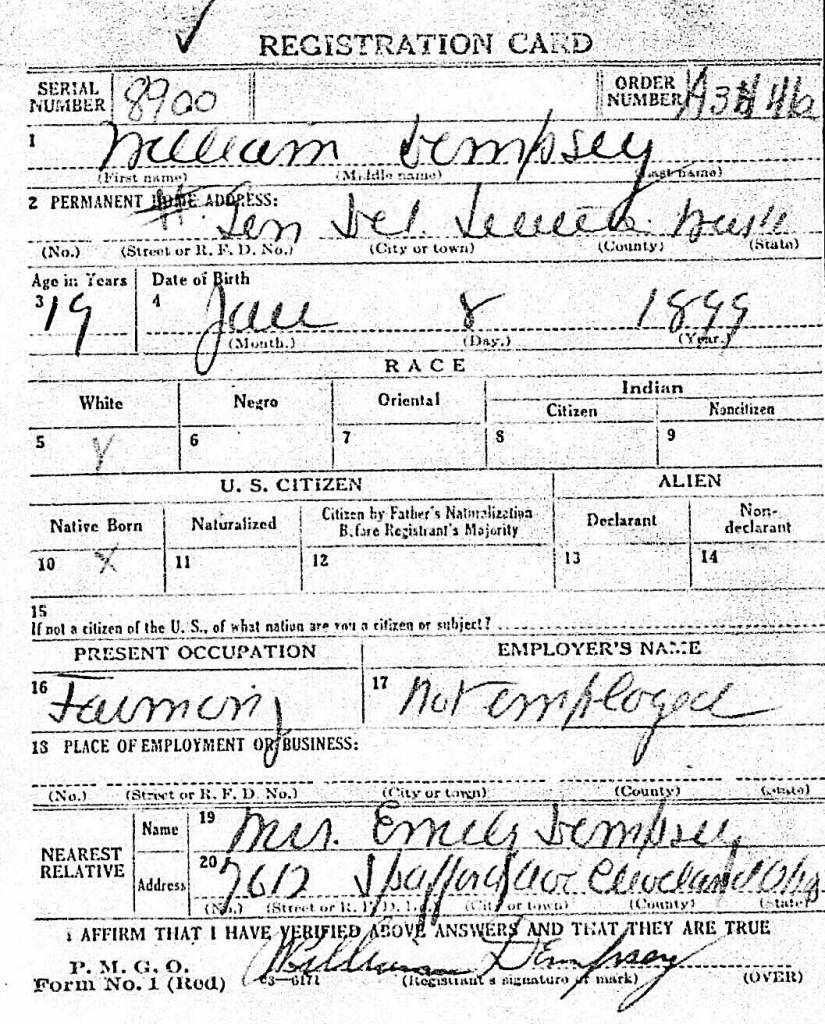 REGISTRATION CARD
SERIAL NUMBER 8900 ORDER NUMBER
1 William Dempsey
(First name) (Middle name) (Last name)
2 PERMANENT HOME ADDRESS:
Gen Del.
(No.) (Street or R. F. D. No.) (City or town) (County) (State)
Age in Years Date of Birth
3 19 4 Jan 8 1899
(Month.) (Day.) (Year.)
RACE
White Negro Oriental Indian
Citizen Noncitizen
5 6 7 8 9
U. S. CITIZEN ALIEN
Native Born Naturalized Citizen by Father's Naturalization Before Registrant's Majority Declarant Non-declarant
10 X 11 12 13 14
15
If not a citizen of the U. S., of what nation are you a citizen or subject?
PRESENT OCCUPATION EMPLOYER'S NAME
16 Farming 17 Not employed
18 PLACE OF EMPLOYMENT OR BUSINESS:
(No.) (Street or R. F. D. No.) (City or town) (County) (State)
NEAREST RELATIVE Name 19 Mrs. Emely Dempsey
Address 20 7612 Spafford Ave Cleveland Ohio
(No.) (Street or R. F. D. No.) (City or town) (County) (State)
I AFFIRM THAT I HAVE VERIFIED ABOVE ANSWERS AND THAT THEY ARE TRUE
P. M. G. O.
Form No. 1 (Red) c3—6171 William Dempsey
(Registrant's signature or mark) (OVER)